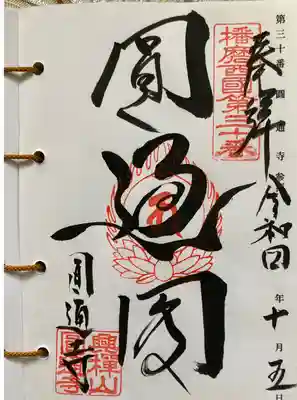 第三十番 圓通寺 参 令和四年十月五日
奉拝
播磨西國第三十番
圓通閣
圓通寺
興禪山
圓通寺